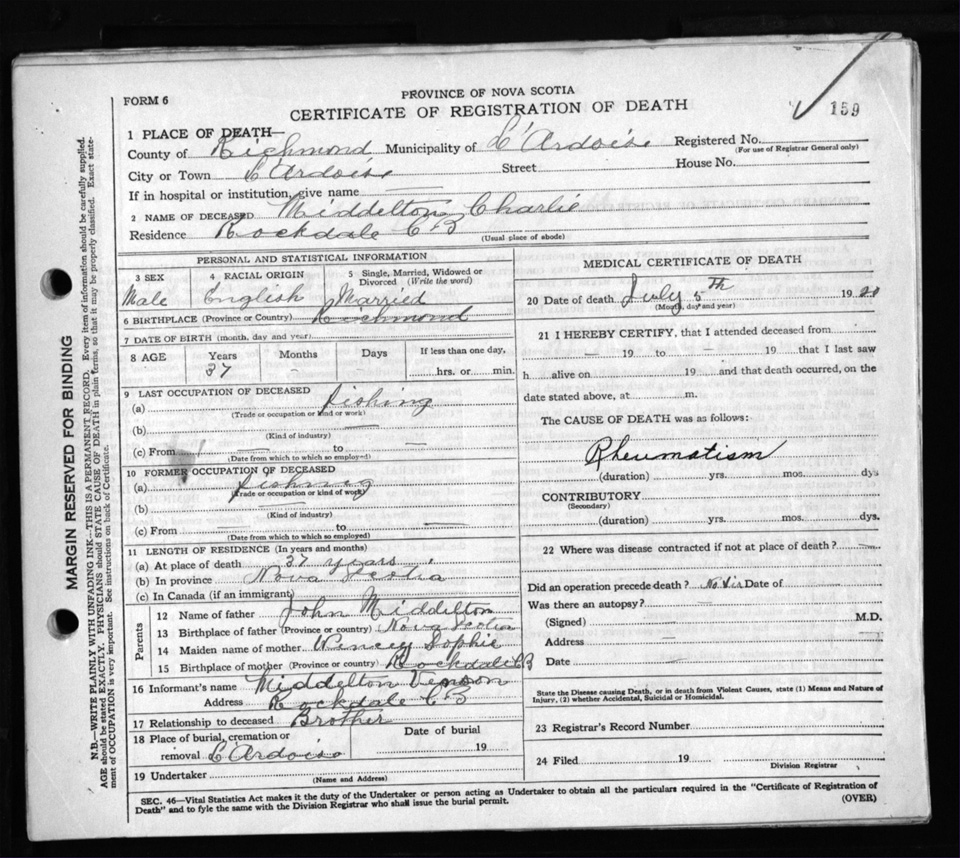 FORM 6
PROVINCE OF NOVA SCOTIA
CERTIFICATE OF REGISTRATION OF DEATH
159
1 PLACE OF DEATH—
County of Richmond Municipality of L'Ardoise Registered No.
(For use of Registrar General only)
City or Town L'Ardoise Street House No.
If in hospital or institution, give name —
2 NAME OF DECEASED Middelton, Charlie
Residence Rockdale CB
(Usual place of abode)
PERSONAL AND STATISTICAL INFORMATION
3 SEX 4 RACIAL ORIGIN 5 Single, Married, Widowed or Divorced (Write the word)
Male English Married
6 BIRTHPLACE (Province or Country) Richmond
7 DATE OF BIRTH (month, day and year)
8 AGE Years Months Days If less than one day,
37 - - hrs. or min.
9 LAST OCCUPATION OF DECEASED
(a) Fishing
(Trade or occupation or kind of work)
(b) —
(Kind of industry)
(c) From — to —
(Date from which to which so employed)
10 FORMER OCCUPATION OF DECEASED
(a) Fishing
(Trade or occupation or kind of work)
(b) —
(Kind of industry)
(c) From — to —
(Date from which to which so employed)
11 LENGTH OF RESIDENCE (In years and months)
(a) At place of death 37 years
(b) In province Nova Scotia
(c) In Canada (if an immigrant)
Parents
12 Name of father John Middelton
13 Birthplace of father (Province or country) Nova Scotia
14 Maiden name of mother Sophie
15 Birthplace of mother (Province or country) Rockdale CB
16 Informant's name Middelton Vernon
Address Rockdale CB
17 Relationship to deceased Brother
18 Place of burial, cremation or removal L'Ardoise
Date of burial
19
19 Undertaker
(Name and Address)
MEDICAL CERTIFICATE OF DEATH
20 Date of death July 5th 19
(Month, day and year)
21 I HEREBY CERTIFY, that I attended deceased from
— 19 to — 19 that I last saw
h alive on 19 and that death occurred, on the
date stated above, at m.
The CAUSE OF DEATH was as follows:
Rheumatism
(duration) yrs. mos. dys
CONTRIBUTORY
(Secondary)
(duration) yrs. mos. dys.
22 Where was disease contracted if not at place of death? —
Did an operation precede death? No Sir Date of
Was there an autopsy? —
(Signed) M.D.
Address —
Date —
State the Disease causing Death, or in death from Violent Causes, state (1) Means and Nature of
Injury, (2) whether Accidental, Suicidal or Homicidal.
23 Registrar's Record Number
24 Filed 19
Division Registrar
SEC. 46—Vital Statistics Act makes it the duty of the Undertaker or person acting as Undertaker to obtain all the particulars required in the "Certificate of Registration of
Death" and to fyle the same with the Division Registrar who shall issue the burial permit.
(OVER)
MARGIN RESERVED FOR BINDING
N.B.—WRITE PLAINLY WITH UNFADING INK—THIS IS A PERMANENT RECORD. Every item of information should be carefully supplied.
AGE should be stated EXACTLY. PHYSICIANS should STATE CAUSE OF DEATH in plain terms, so that it may be properly classified. Exact state-
ment of OCCUPATION is very important. See instructions on back of Certificate.